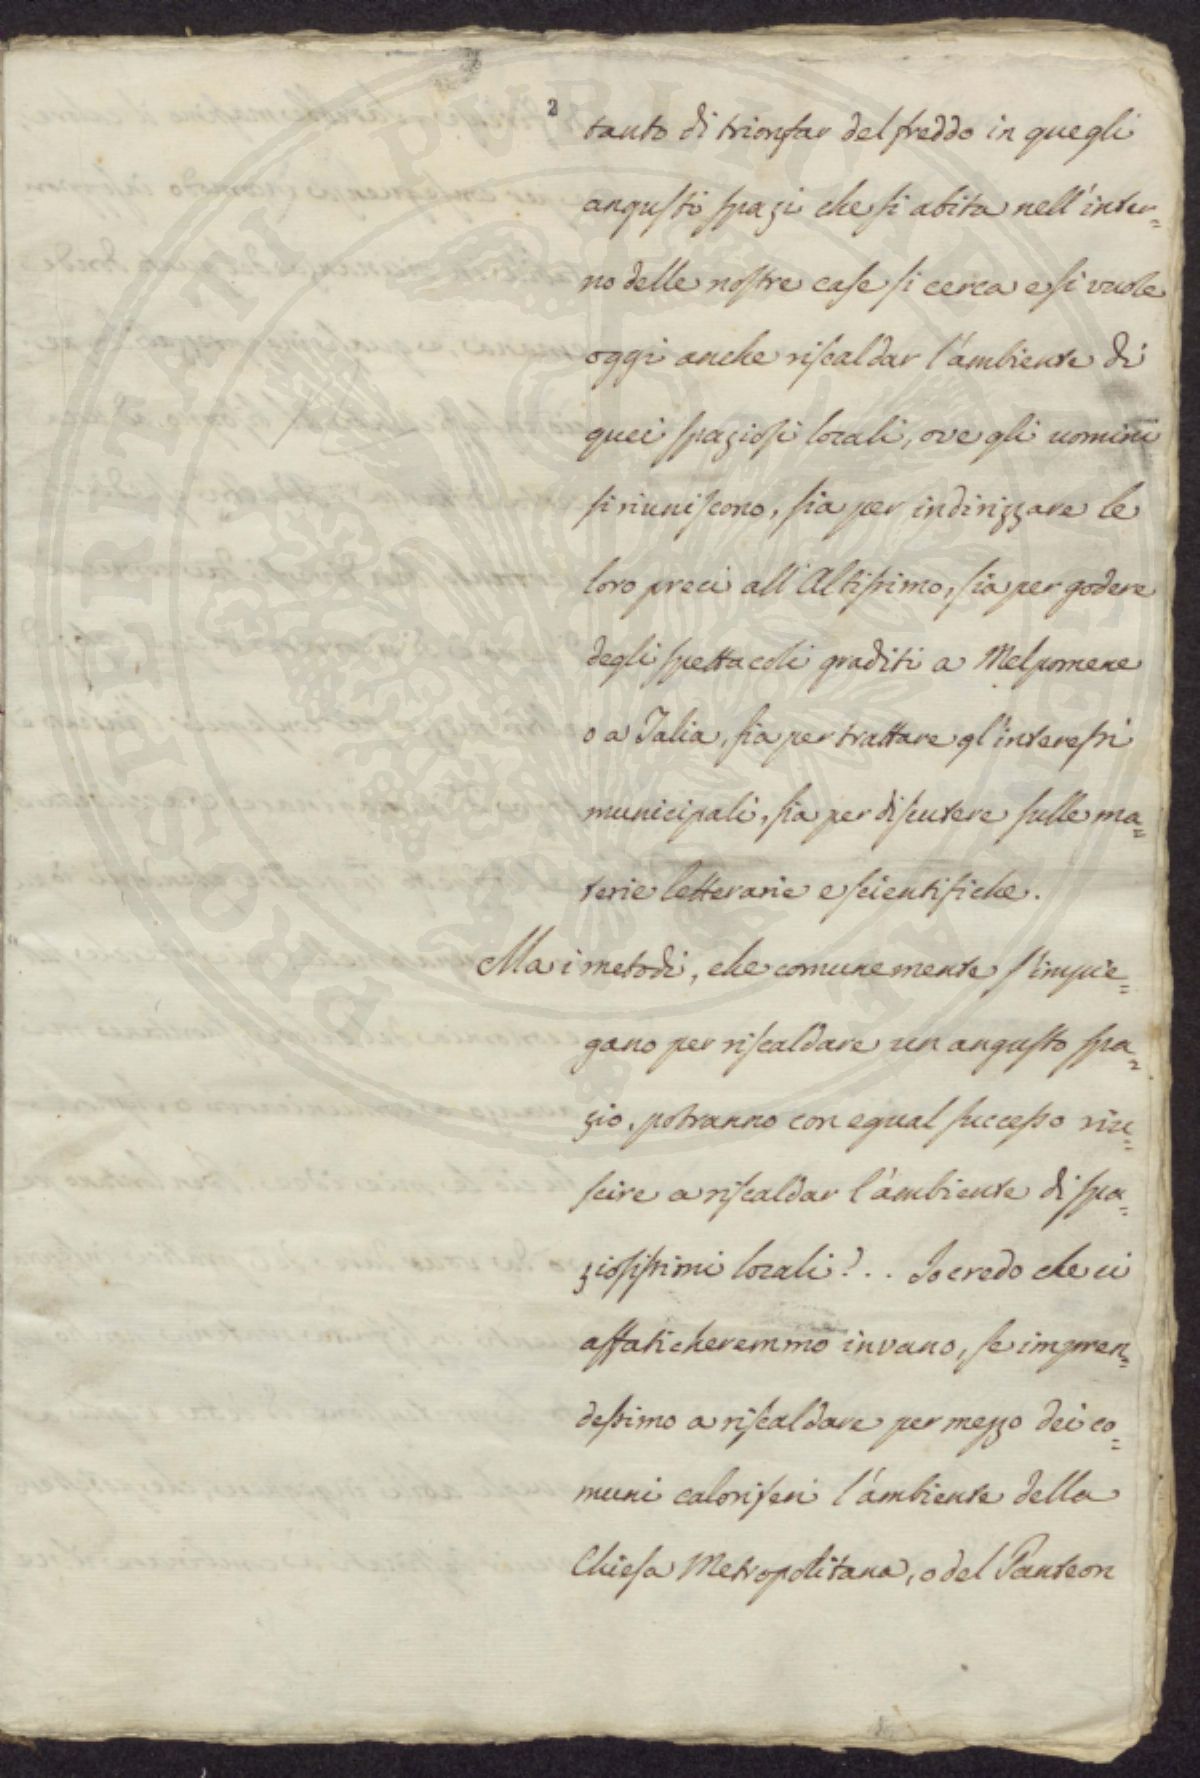 2
tanto di trionfar del freddo in quegli
angusti spazi che si abita nell'inter=
no delle nostre case si cerca e si vuole
oggi anche riscaldar l'ambiente di
quei spaziosi locali, ove gli uomini
si riuniscono, sia per indirizzare le
loro preci all'Altissimo, sia per godere
degli spettacoli graditi a Melpomene
o a Talia, sia per trattare gl'interessi
municipali, sia per discutere sulle ma=
terie letterarie e scientifiche.
Ma i metodi, che comunemente s'impie=
gano per riscaldare un angusto spa=
zio, potranno con egual successo riu=
scire a riscaldar l'ambiente di spa=
ziosissimi locali?.. Io credo che ci
affaticheremmo invano, se impren=
dessimo a riscaldare per mezzo dei co=
muni caloriferi l'ambiente della
Chiesa Metropolitana, o del Panteon
PROSPERITATI PUBLICAE AUGENDAE